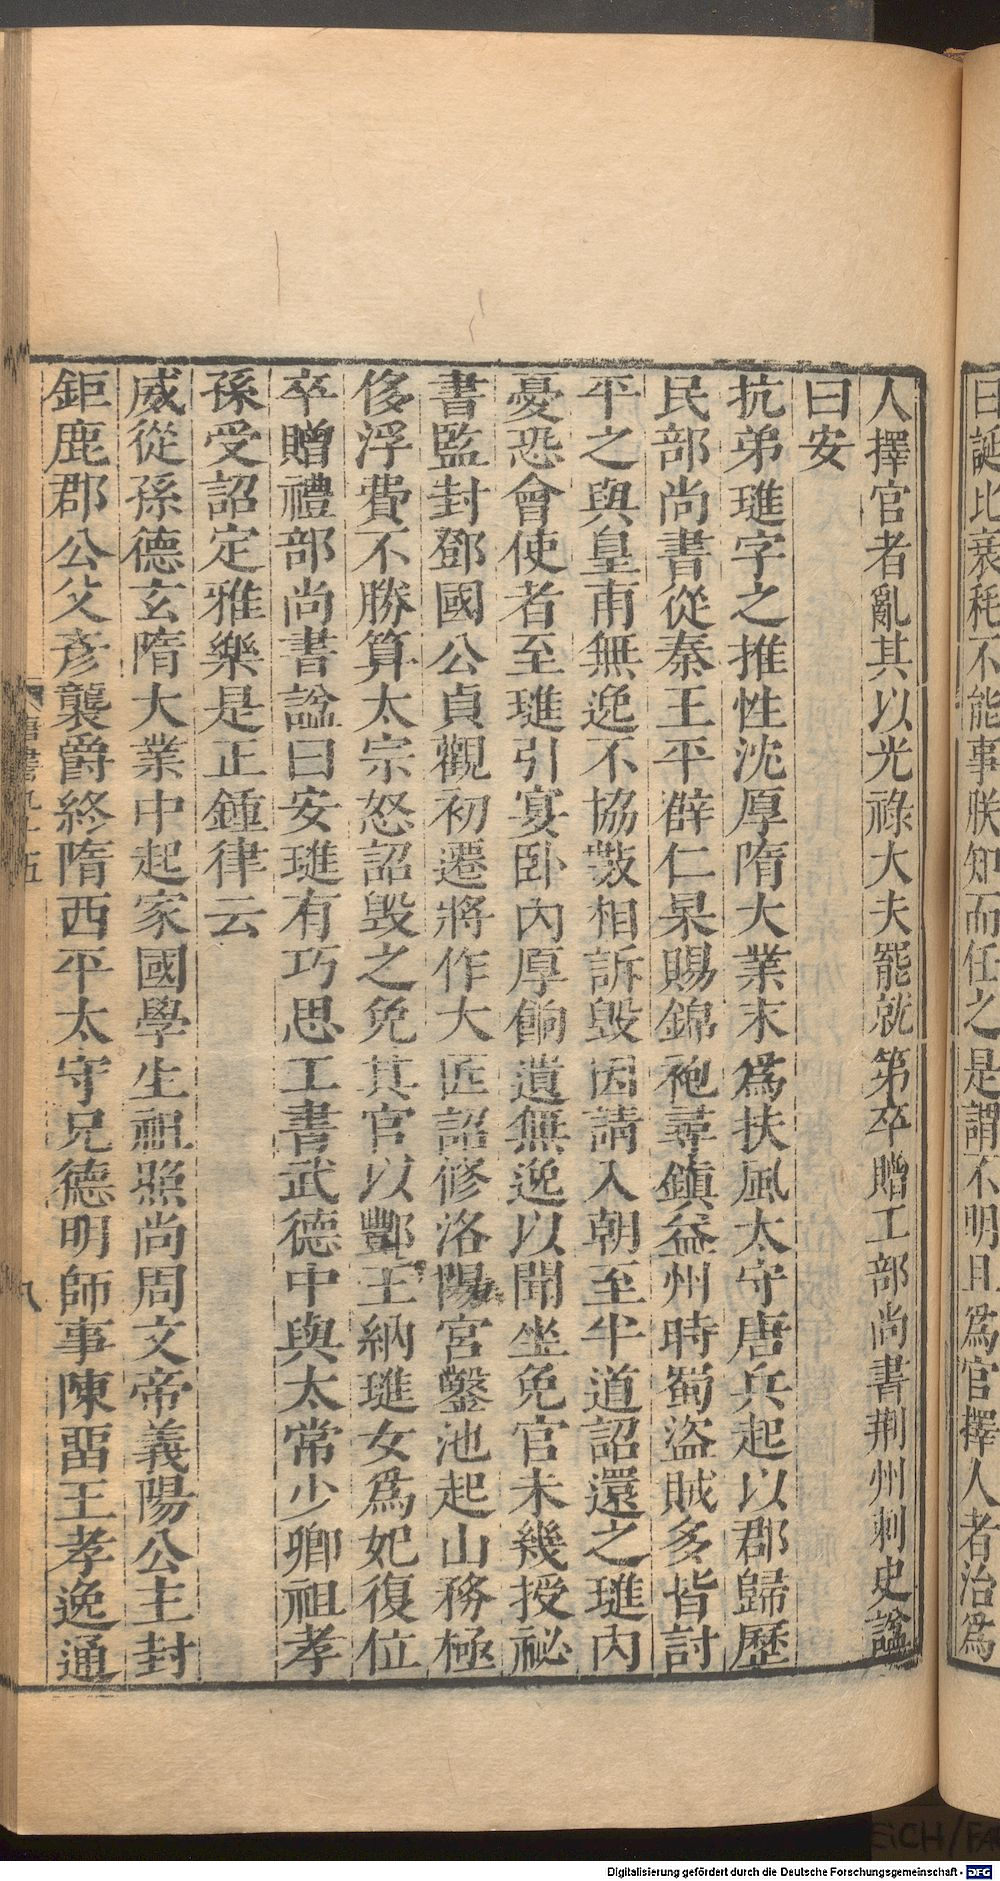 曰誕比衰耗不能事朕知而任之是謂不明且爲官擇人者治爲
人擇官者亂其以光祿大夫罷就第卒贈工部尚書荆州刺史諡
曰安
抗弟璡字之推性沈厚隋大業末爲扶風太守唐兵起以郡歸歷
民部尚書從秦王平薛仁杲賜錦袍尋鎮益州時蜀盜賊多皆討
平之與皇甫無逸不協數相訴毀因請入朝至半道詔還之璡內
憂恐會使者至璡引宴卧內厚餉遺無逸以聞坐免官未幾授祕
書監封鄧國公貞觀初遷將作大匠詔修洛陽宮鑿池起山務極
侈浮費不勝算太宗怒詔毀之免其官以酆王納璡女爲妃復位
卒贈禮部尚書諡曰安璡有巧思工書武德中與太常少卿祖孝
孫受詔定雅樂是正鍾律云
威從孫德玄隋大業中起家國學生祖照尚周文帝義陽公主封
鉅鹿郡公父彥襲爵終隋西平太守兄德明師事陳畱王孝逸通
唐書九十五
八
Digitalisierung gefördert durch die Deutsche Forschungsgemeinschaft - DFG